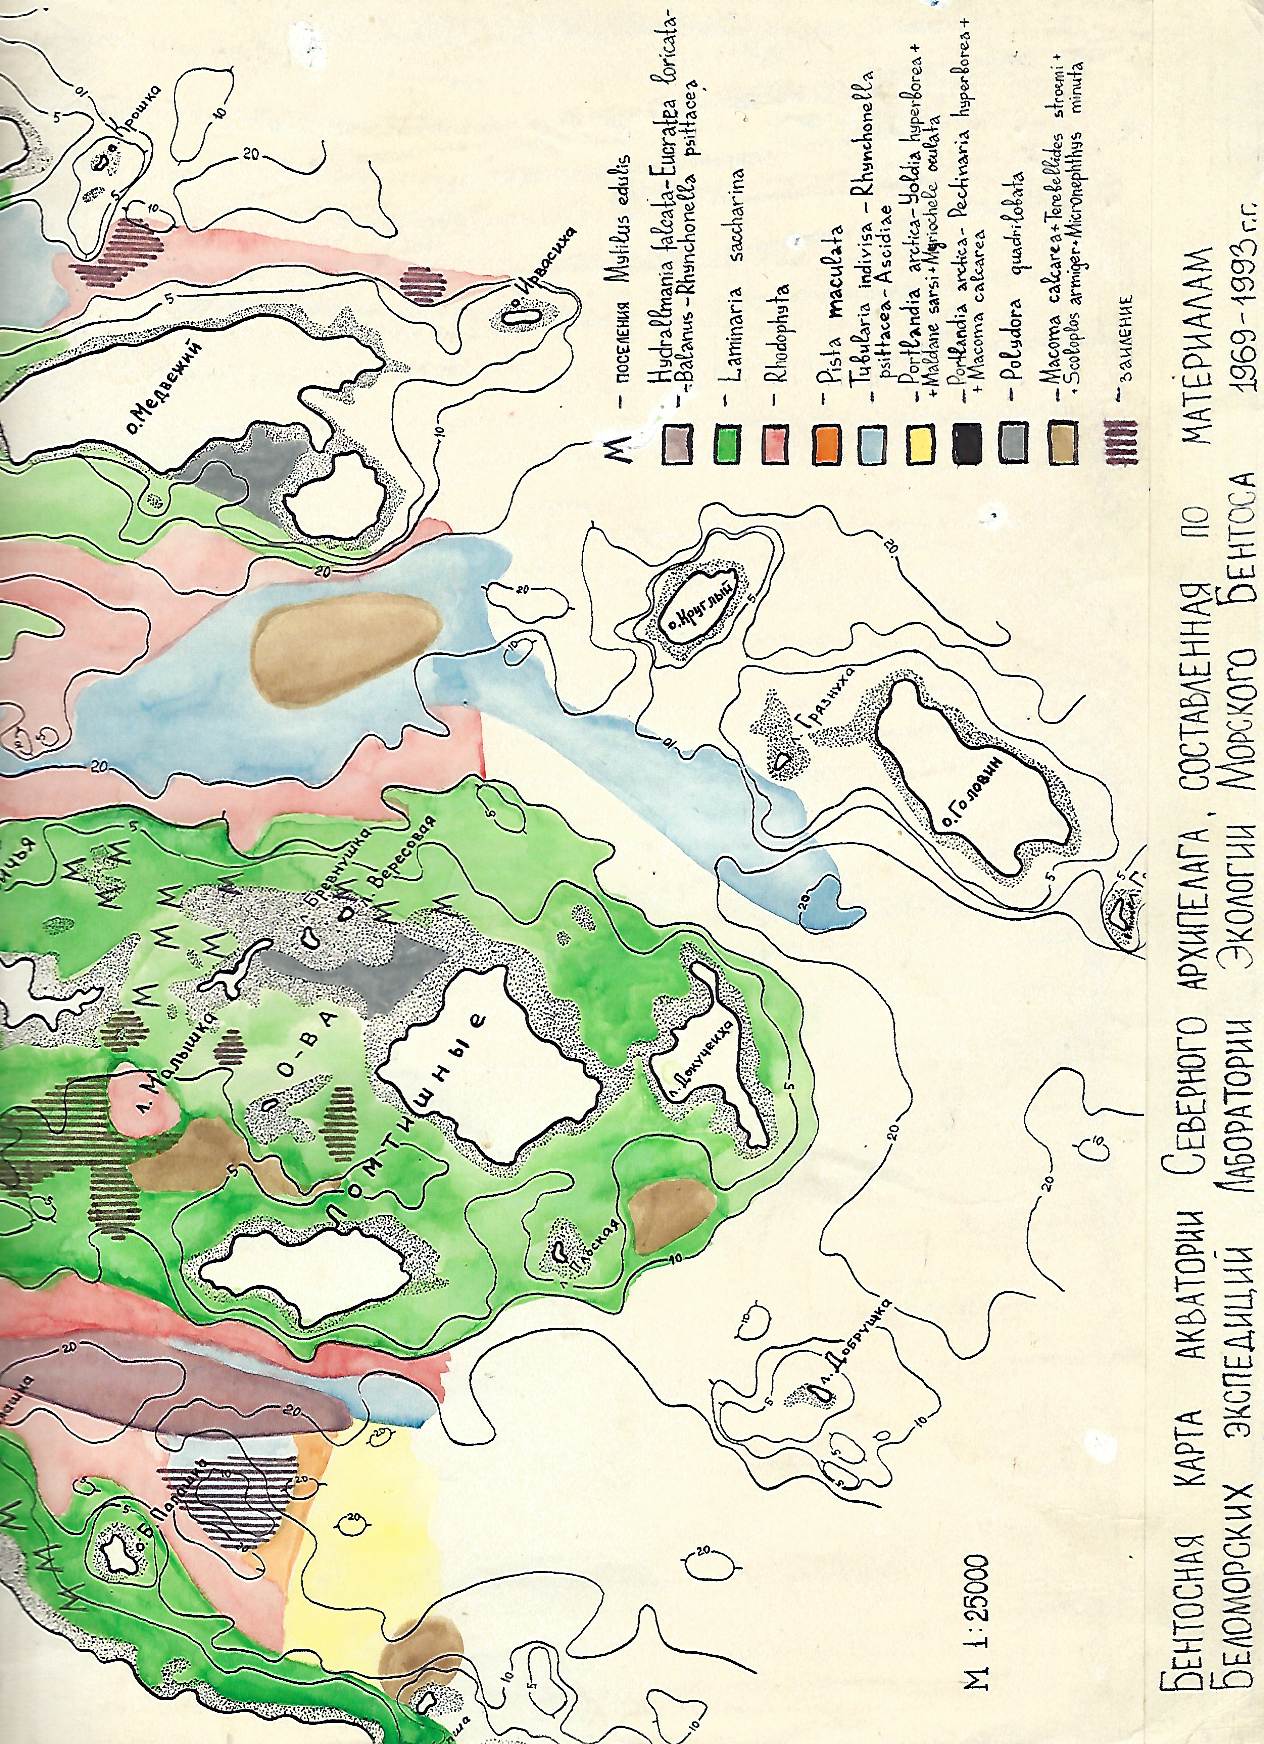 о. Б. Палашка
л. Малышка
О-ВА
ЛОМТИШНЫЕ
л. Бревнушка
л. Вересовая
л. Плоская
л. Докучеиха
л. Добрушка
о. Медвежий
о. Крошка
о. Ирвасиха
о. Круглый
л. Грязнуха
о. Головин
5
10
20
М 1:25000
М – поселения Mytilus edulis
– Hydrallmania falcata – Eucratea loricata –
– Balanus – Rhynchonella psittacea
– Laminaria saccharina
– Rhodophyta
– Pista maculata
– Tubularia indivisa – Rhynchonella
psittacea – Ascidiae
– Portlandia arctica – Yoldia hyperborea +
+ Maldane sarsi + Myriochele oculata
– Portlandia arctica – Pectinaria hyperborea +
+ Macoma calcarea
– Polydora quadrilobata
– Macoma calcarea + Terebellides stroemi +
+ Scoloplos armiger + Micronephthys minuta
– заиление
Бентосная карта акватории Северного архипелага, составленная по материалам
Беломорских экспедиций Лаборатории Экологии Морского Бентоса 1969-1993 г.г.